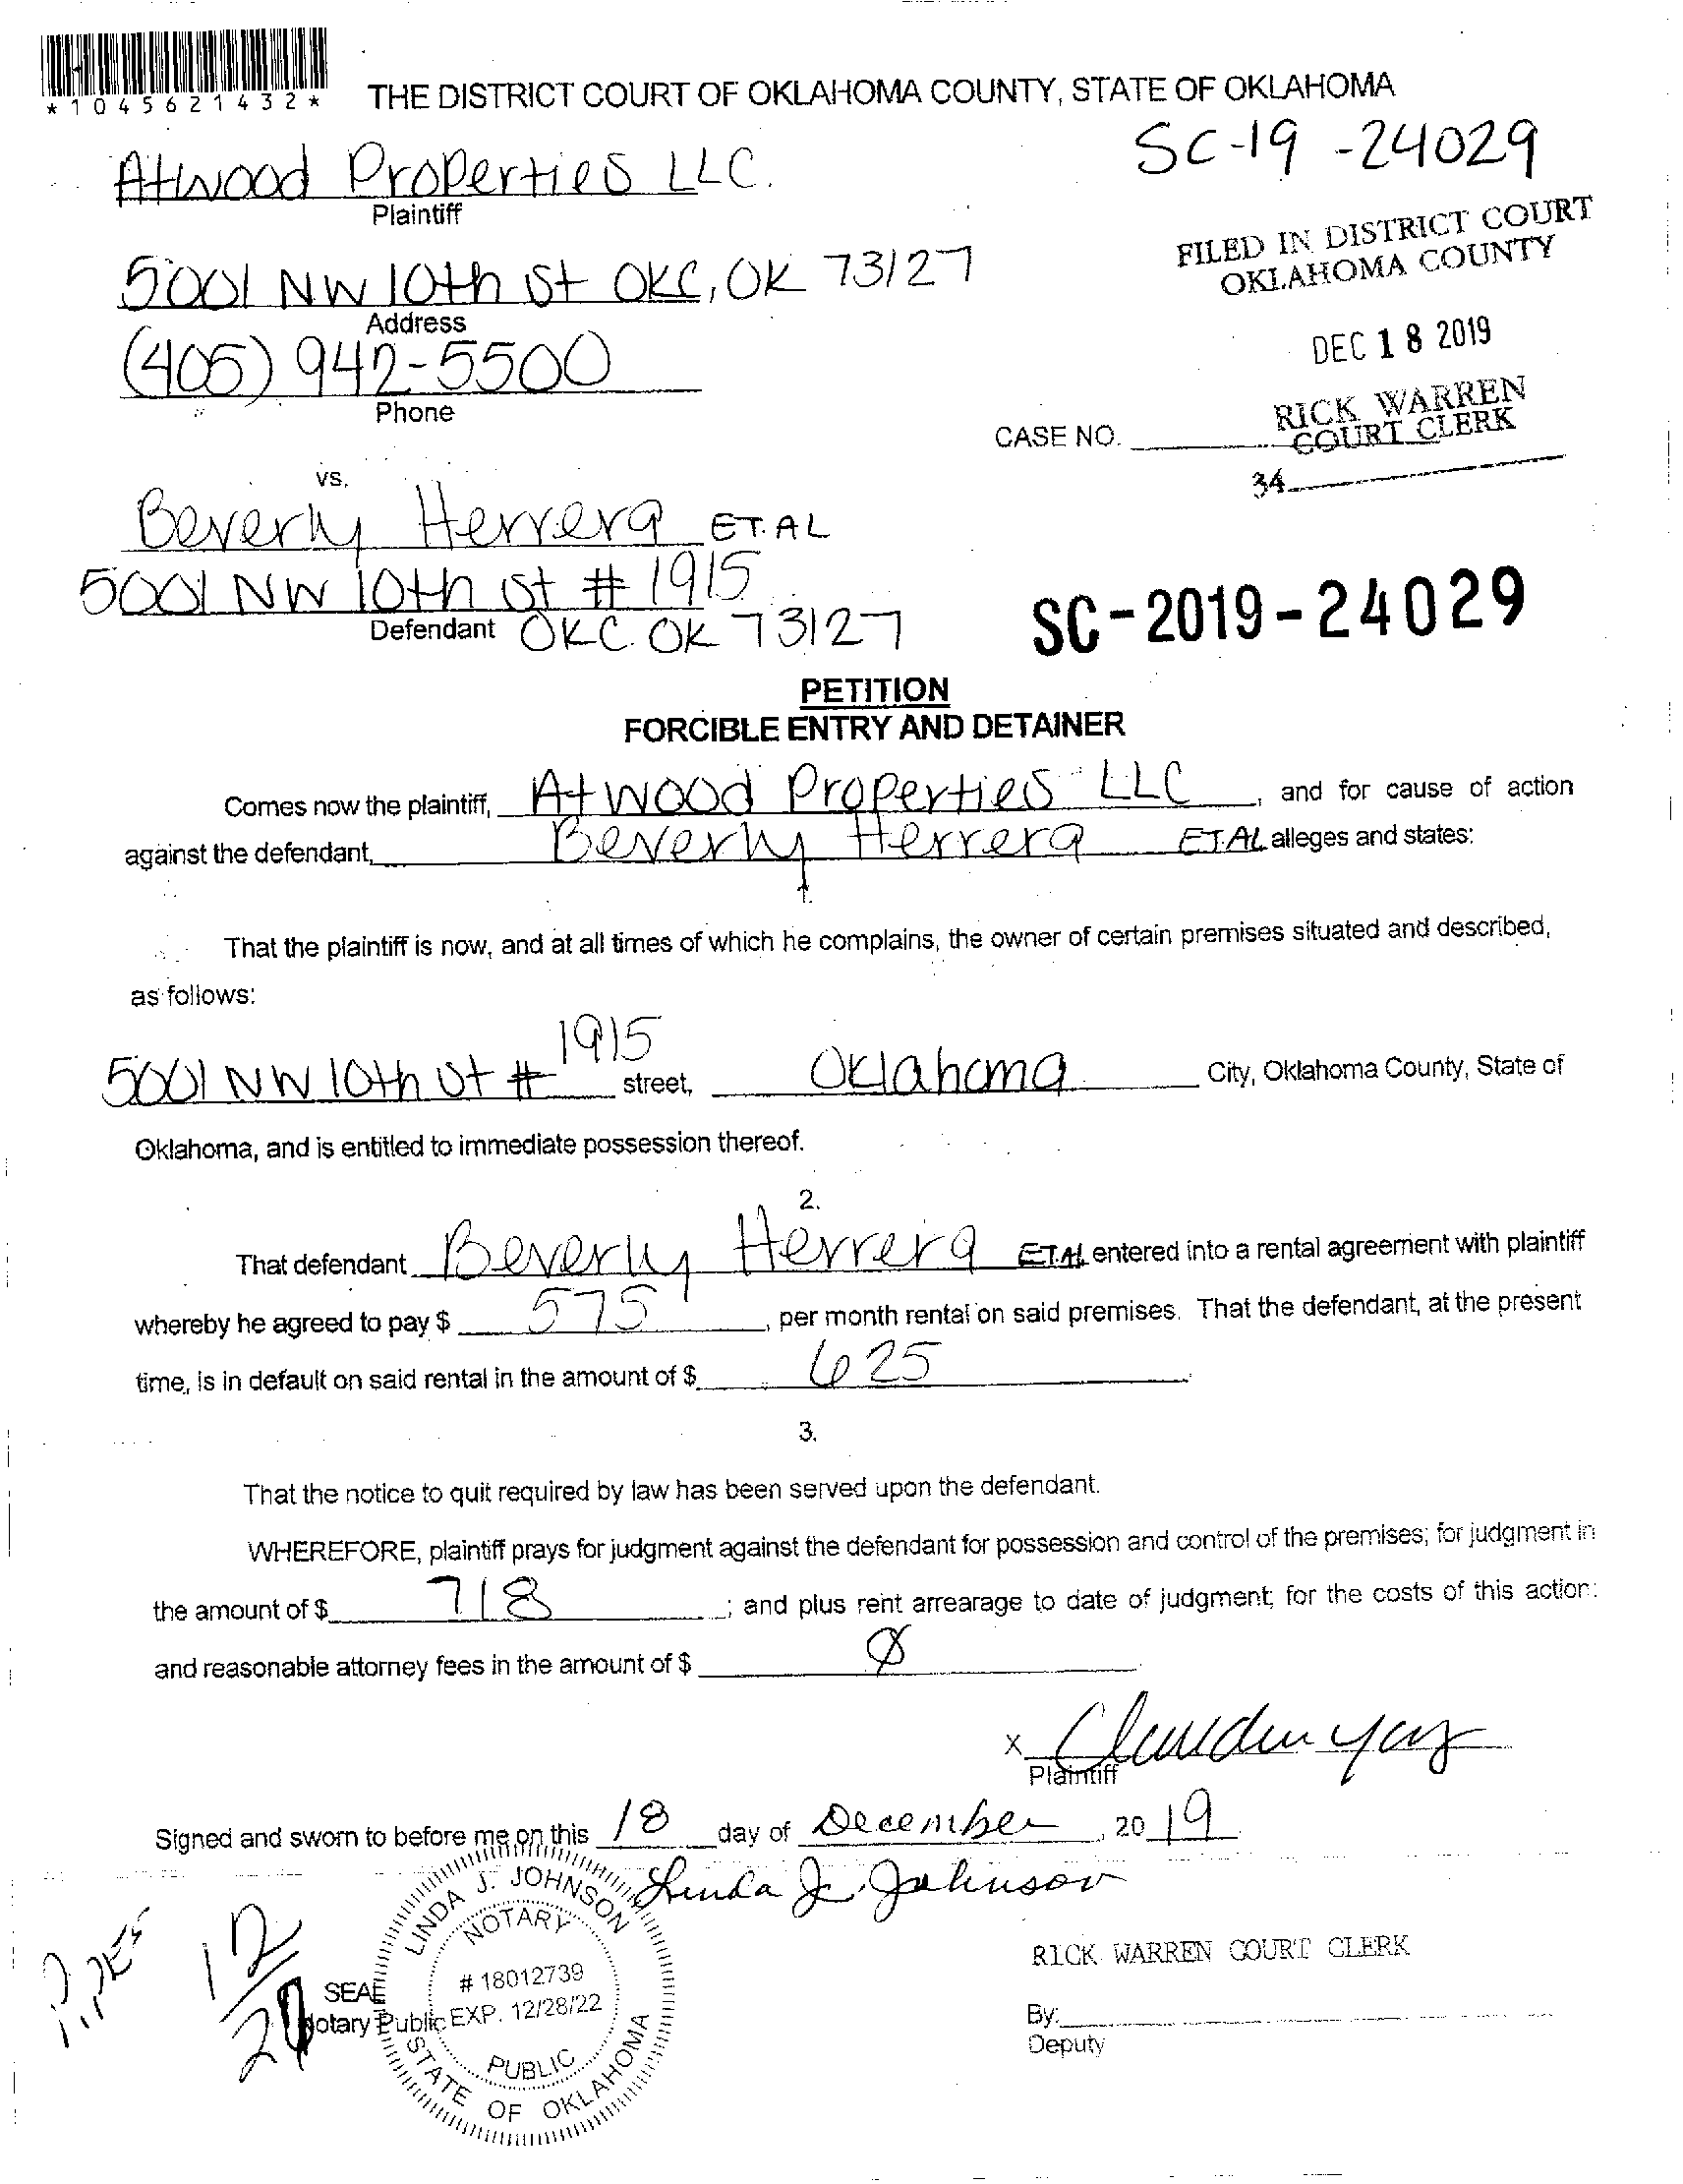 *1045621432*
THE DISTRICT COURT OF OKLAHOMA COUNTY, STATE OF OKLAHOMA
SC-19-24029
Atwood Properties LLC.
Plaintiff
FILED IN DISTRICT COURT
OKLAHOMA COUNTY
5001 NW 10th St OKC, OK 73127
Address
DEC 18 2019
(405) 942-5500
Phone
RICK WARREN
COURT CLERK
CASE NO.
34
vs.
Beverly Herrera ET.AL
5001 NW 10th St # 1915
Defendant OKC. OK 73127
SC-2019-24029
PETITION
FORCIBLE ENTRY AND DETAINER
Comes now the plaintiff, Atwood Properties LLC, and for cause of action
against the defendant, Beverly Herrera ET.AL alleges and states:
That the plaintiff is now, and at all times of which he complains, the owner of certain premises situated and described,
as follows:
5001 NW 10th St # 1915 street, Oklahoma City, Oklahoma County, State of
Oklahoma, and is entitled to immediate possession thereof.
2.
That defendant Beverly Herrera ET.AL entered into a rental agreement with plaintiff
whereby he agreed to pay $ 575, per month rental on said premises. That the defendant, at the present
time, is in default on said rental in the amount of $ 625.
3.
That the notice to quit required by law has been served upon the defendant.
WHEREFORE, plaintiff prays for judgment against the defendant for possession and control of the premises; for judgment in
the amount of $ 718; and plus rent arrearage to date of judgment; for the costs of this action:
and reasonable attorney fees in the amount of $ Ø.
X
Plaintiff
Signed and sworn to before me on this 18 day of December, 2019.
Linda J. Johnson
LINDA J. JOHNSON
NOTARY
# 18012739
EXP. 12/28/22
PUBLIC
STATE OF OKLAHOMA
SEAL
Notary Public
12
RICK WARREN COURT CLERK
By:
Deputy